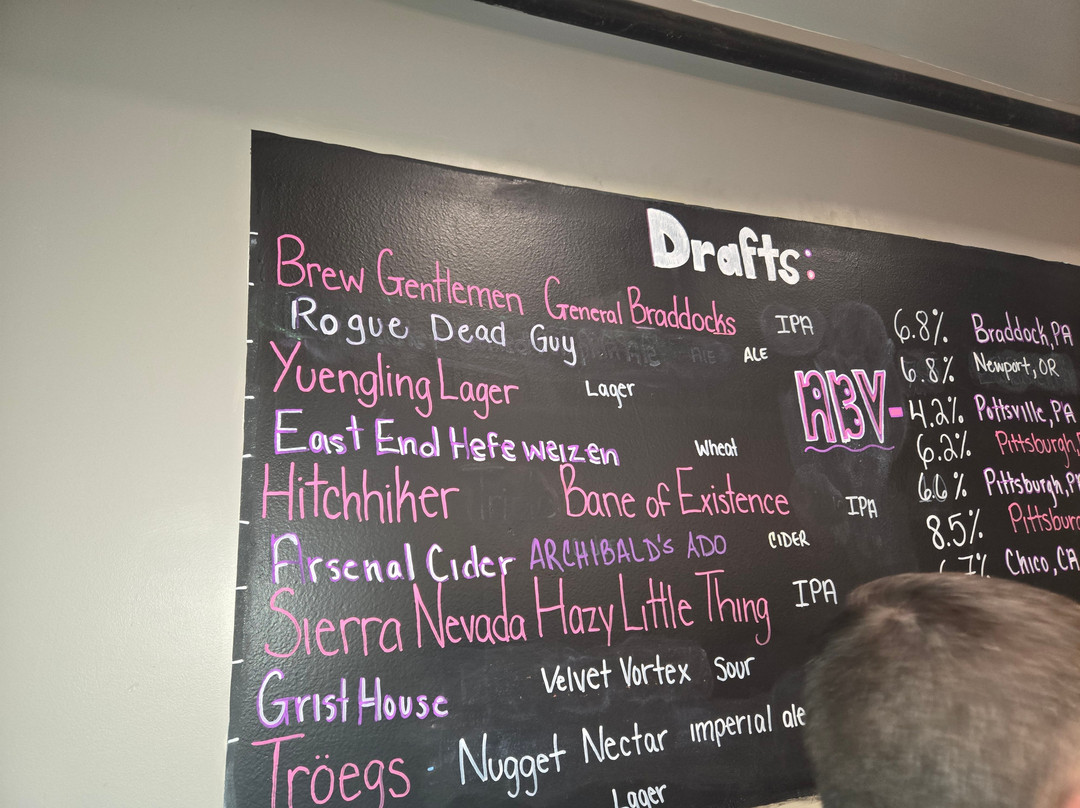 Drafts:
Brew Gentlemen General Braddocks IPA 6.8% Braddock, PA
Rogue Dead Guy ALE 6.8% Newport, OR
Yuengling Lager Lager ABV- 4.2% Pottsville, PA
East End Hefeweizen Wheat 6.2% Pittsburgh,
Hitchhiker Bane of Existence IPA 6.6% Pittsburgh, P
Arsenal Cider ARCHIBALD'S ADO CIDER 8.5% Pittsburg
Sierra Nevada Hazy Little Thing IPA Chico, CA
Grist House Velvet Vortex Sour
Tröegs - Nugget Nectar imperial ale
Lager